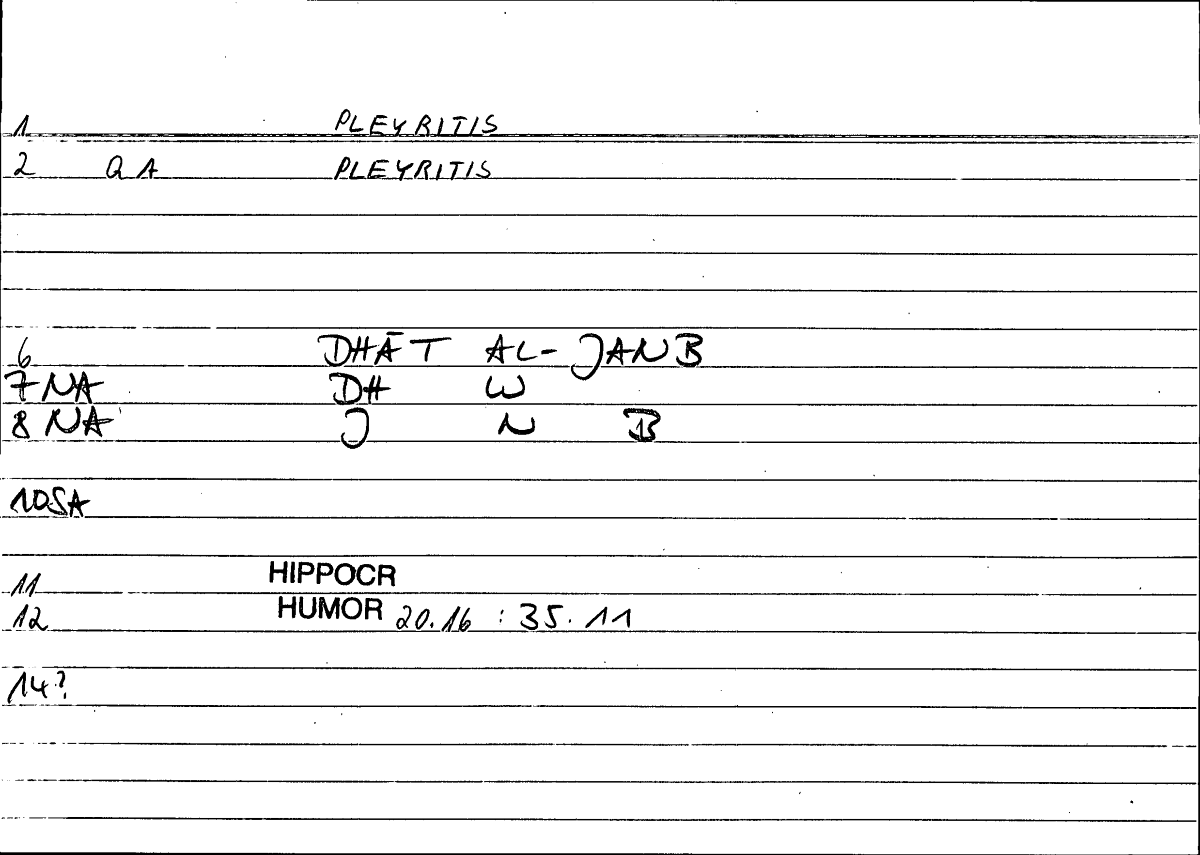 1 PLEYRITIS
2 QA PLEYRITIS
6 DHĀT AL-JANB
7 NA DH W
8 NA J N B
10SA
11 HIPPOCR
12 HUMOR 20.16 : 35.11
14?